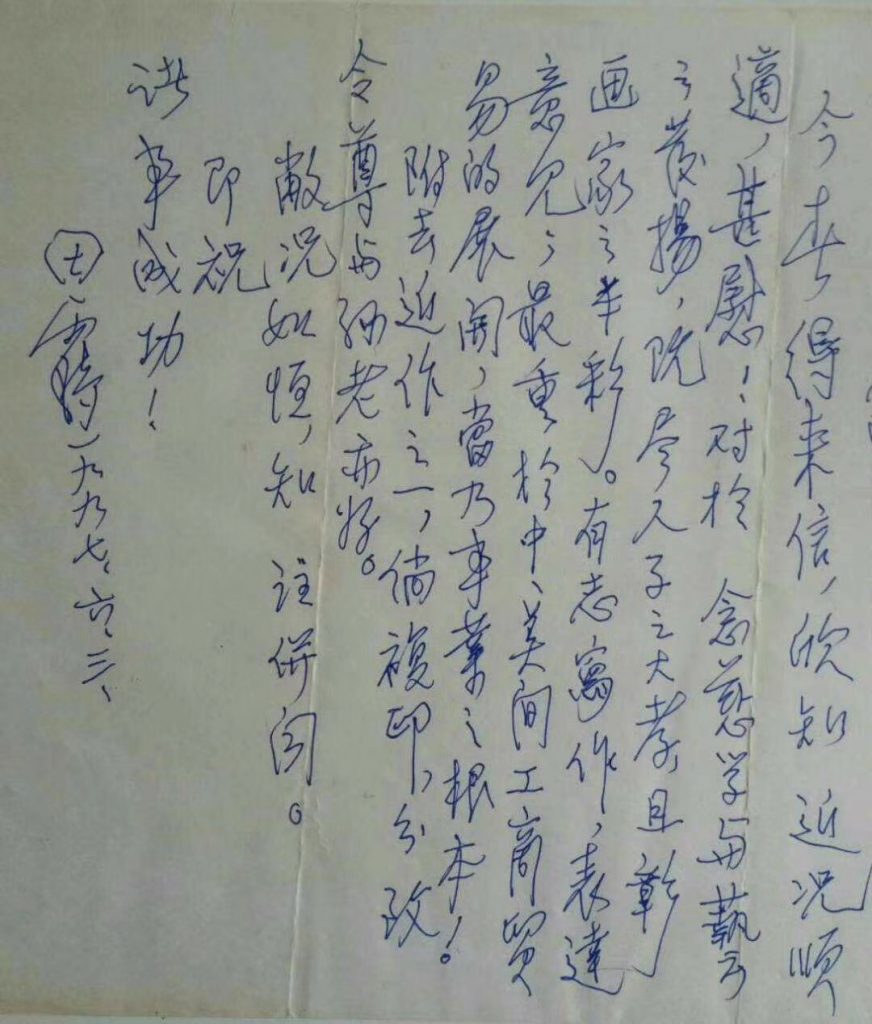 今春得来信，欣知 近况順
適，甚慰！对於 令慈学与藝
之發揚，既尽人子之大孝，且彰
画家之丰彩。有志寫作，表達
意见；最重於中、美间工商贸
易的展開，當乃事業之根本！
附去近作之一，倘複印，分致
令尊与 老亦好。
敝况如恒，知 註併闻。
即祝
諸事成功！
一九九七、六、三、